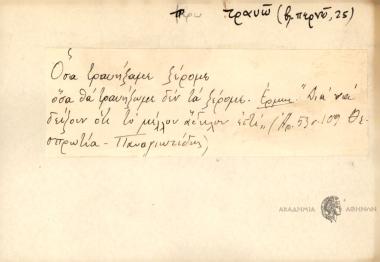 τραυῶ (βλ. περνῶ, 25)
Ὅσα τραυήξαμε ξέρομε
ὅσα θὰ τραυήξωμε δὲν τὰ ξέρομε. Ἑρμην. "Διὰ νὰ
δείξουν ὅτι τὸ μέλλον ἄδηλον ἐστί„ (Ἀρ. 53 σ. 109 Θε-
σπρωτία - Παναγιωτίδης)
ΑΚΑΔΗΜΙΑ ΑΘΗΝΩΝ